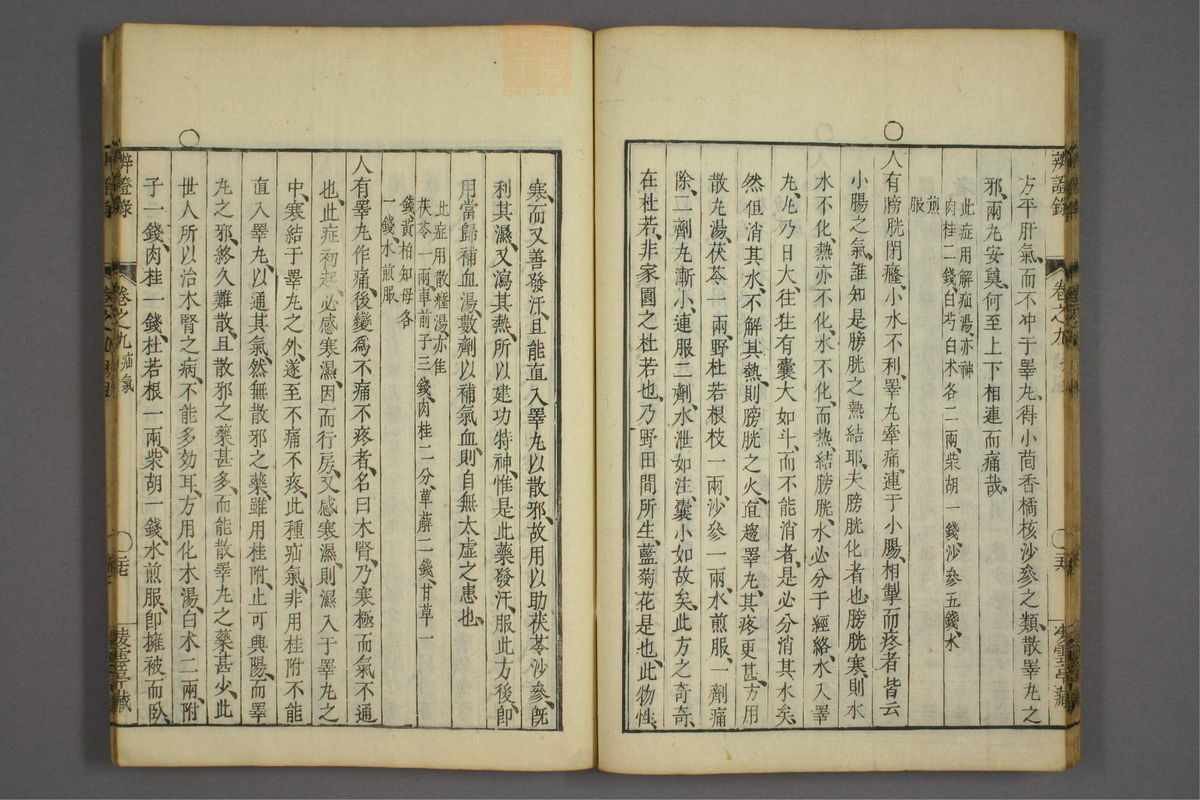 辨證錄
卷之九
方平肝氣而不冲于睪丸得小茴香橘核沙參之類散睪丸之
邪兩丸安奠何至上下相連而痛哉
此症用解疝湯亦神
肉桂二錢白芍白术各二兩柴胡一錢沙參五錢水
煎
服
人有膀胱閉癃小水不利睪丸牽痛連于小腸相掣而疼者皆云
小腸之氣誰知是膀胱之熱結耶夫膀胱化者也膀胱寒則水
水不化熱亦不化水不化而熱結膀胱水必分于經絡水入睪
丸丸乃日大往往有囊大如斗而不能消者是必分消其水矣
然但消其水不解其熱則膀胱之火直趨睪丸其疼更甚方用
散丸湯茯苓一兩野杜若根枝一兩沙參一兩水煎服一劑痛
除二劑丸漸小連服二劑水泄如注囊小如故矣此方之奇奇
在杜若非家園之杜若也乃野田間所生藍菊花是也此物性
寒而又善發汗且能直入睪丸以散邪故用以助茯苓沙參既
利其濕又瀉其熱所以建功特神惟是此藥發汗服此方後即
用當歸補血湯數劑以補氣血則自無太虛之患也
此症用散癃湯亦佳
茯苓一兩車前子三錢肉桂二分萆薢二錢甘草一
錢黃柏知母各
一錢水煎服
人有睪丸作痛後變爲不痛不疼者名曰木腎乃寒極而氣不通
也此症初起必感寒濕因而行房又感寒濕則濕入于睪丸之
中寒結于睪丸之外遂至不痛不疼此種疝氣非用桂附不能
直入睪丸以通其氣然無散邪之藥雖用桂附止可興陽而睪
丸之邪終久難散且散邪之藥甚多而能散睪丸之藥甚少此
世人所以治木腎之病不能多効耳方用化木湯白术二兩附
子一錢肉桂一錢杜若根一兩柴胡一錢水煎服即擁被而臥
辨證錄
卷之九疝氣